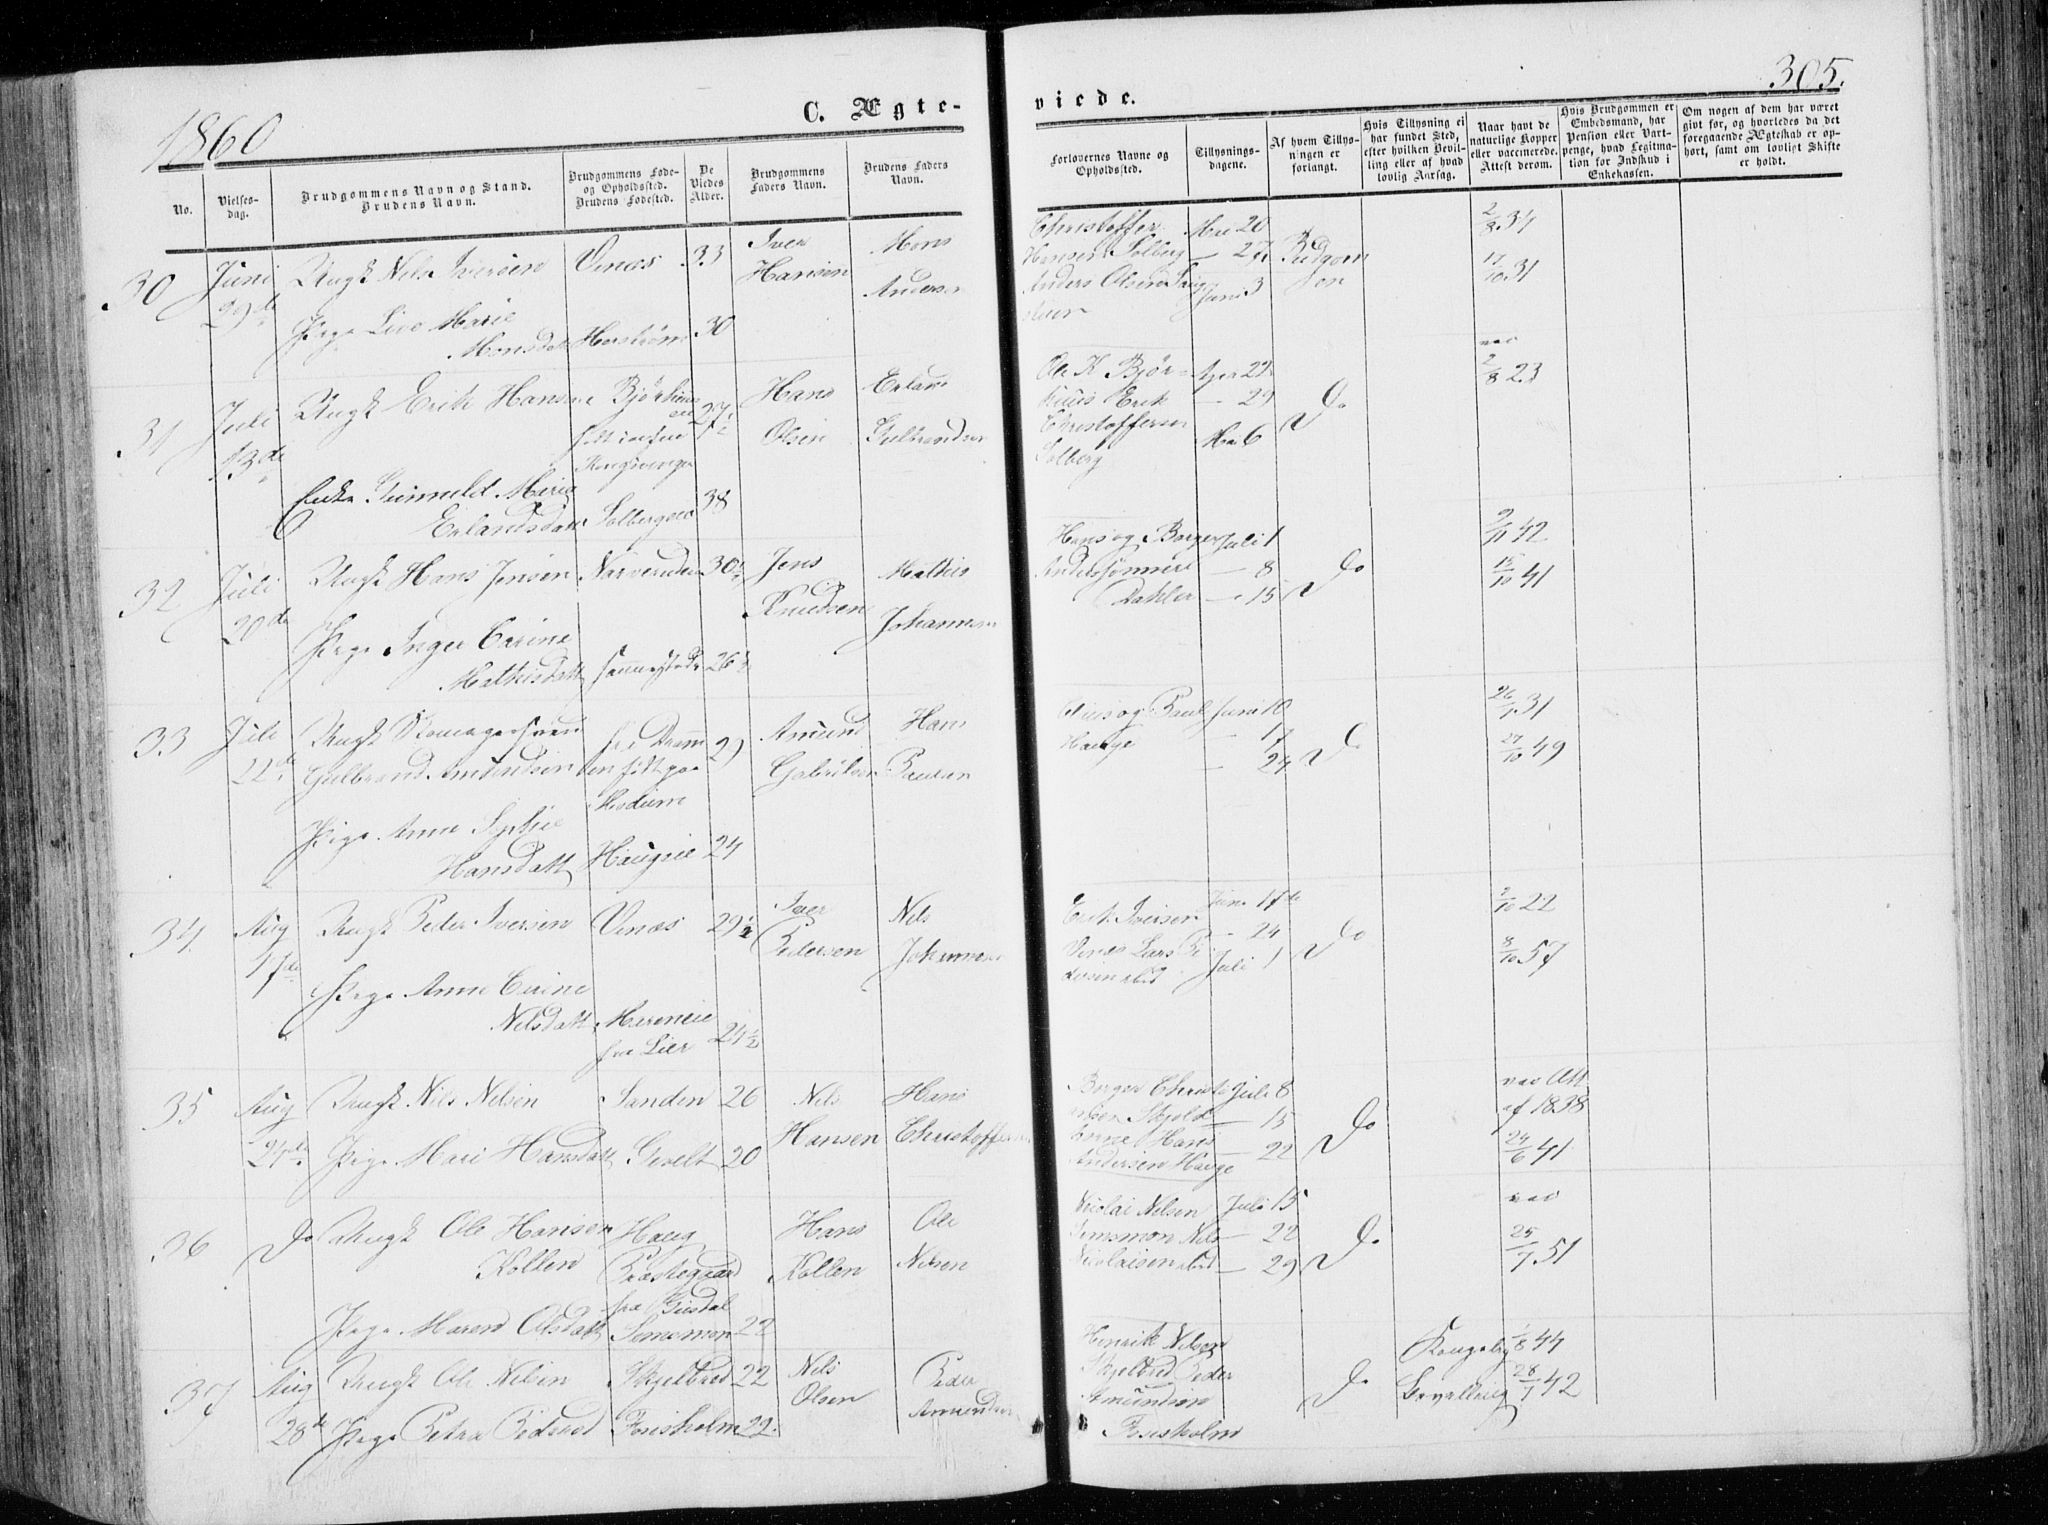 1860
C. Ægte-
No.
Vielses-
dag.
Brudgommens Navn og Stand.
Brudens Navn.
Brudgommens Føde-
og Opholdssted.
Brudens Fødested.
De
Viedes
Alder.
Brudgommens
Faders Navn.
Brudens Faders
Navn.
30
Juni
29de
Ungk Nils Iversen
Vinæs
33
Iver
Hansen
Mons
Andersen
Pige Live Marie
Monsdatt
30
31
Juli
13de
Ungk Erik Hansen
27 1/2
Hans
Olsen
Erland
Gulbrandsen
Kongsvinger
Enke Gunnild Marie
Erlandsdatt
Solbergeie
38
32
Juli
20de
Ungk Hans Jensen
Narverud
30 1/2
Jens
Knudsen
Mathis
Johannesen
Pige Inger Carine
Mathisdatt
sammesteds
26 1/2
33
Juli
22de
Ungk
Gulbrand Amundsen
fra Dramm
en født paa
Modum
29
Amund
Gabrilsen
Hans
Paulsen
Pige Anne Sophie
Hansdatt
Haugeie
24
34
Aug
17de
Ungk Peder Iversen
Vinæs
29 1/2
Iver
Pedersen
Nils
Johannesen
Pige Anne Cirine
Nilsdatt
fra Lier
24 1/2
35
Aug
24de
Ungk Nils Nilsen
Sanden
26
Nils
Hansen
Hans
Christoffersen
Pige Mari Hansdatt
Gevelt
20
36
Do
Ungk Ole Hansen
Kollen
Haug
Præstegaard
fra Gusdal
Hans
Kollen
Ole
Nilsen
Pige Maren Olsdatt
Semsmon
22
37
Aug
28de
Ungk Ole Nilsen
Skjelbred
22
Nils
Olsen
Peder
Amundsen
Pige Petra Peders
Fossholm
22
305.
viede.
Forlovernes Navne og
Opholdssted.
Tillysnings-
dagene.
Af hvem Tillys-
ningen er
forlangt.
Hvis Tillysning ei
har fundet Sted,
efter hvilken Bevil-
ling eller af hvad
lovlig Aarsag.
Naar havt de
naturlige Kopper
eller vaccinerede.
Attest derom.
Hvis Brudgommen er
Embedsmand, har
Pension eller Vart-
penge, hvad Legitima-
tion for Indskud i
Enkekassen.
Om nogen af dem har været
gift før, og hvorledes da det
foregaaende Ægteskab er op-
hørt, samt om lovligt Skifte
er holdt.
Christoffer
Hansen Solberg
Anders Olsen
Mai 20
— 27
Juni 3
Brudgom
men
2/8 34
17/10 31
Ole K Bjør-
Erik
Christoffersen
Solberg
Apr 22
— 29
Mai 6
Do
vac
2/8 23
Hans og Borger
Anderssønner
Dahler
Juli 1
— 8
— 15
Do
9/11 42
15/10 41
og Paul
Hauge
Juni 10
— 17
— 24
Do
26/7 31
27/10 49
Erik Iversen
Vinæs Lars Pe
dersen ibid
Juni 17de
— 24
Juli 1
Do
2/10 22
8/10 57
Borger Christi
ansen Skjeld
Hans
Andersen Hauge
Juli 8
— 15
— 22
Do
vac Att
af 1838
24/6 41
Nicolai Nilsen
Semsmon Nils
Nicolaisen ibid
Juli 15
— 22
— 29
Do
vac
25/7 51
Henrik Nilsen
Skjelbred Peder
Amundsen
Fossholm
Do
Kongelig
Bevilling
1/8 44
28/7 42